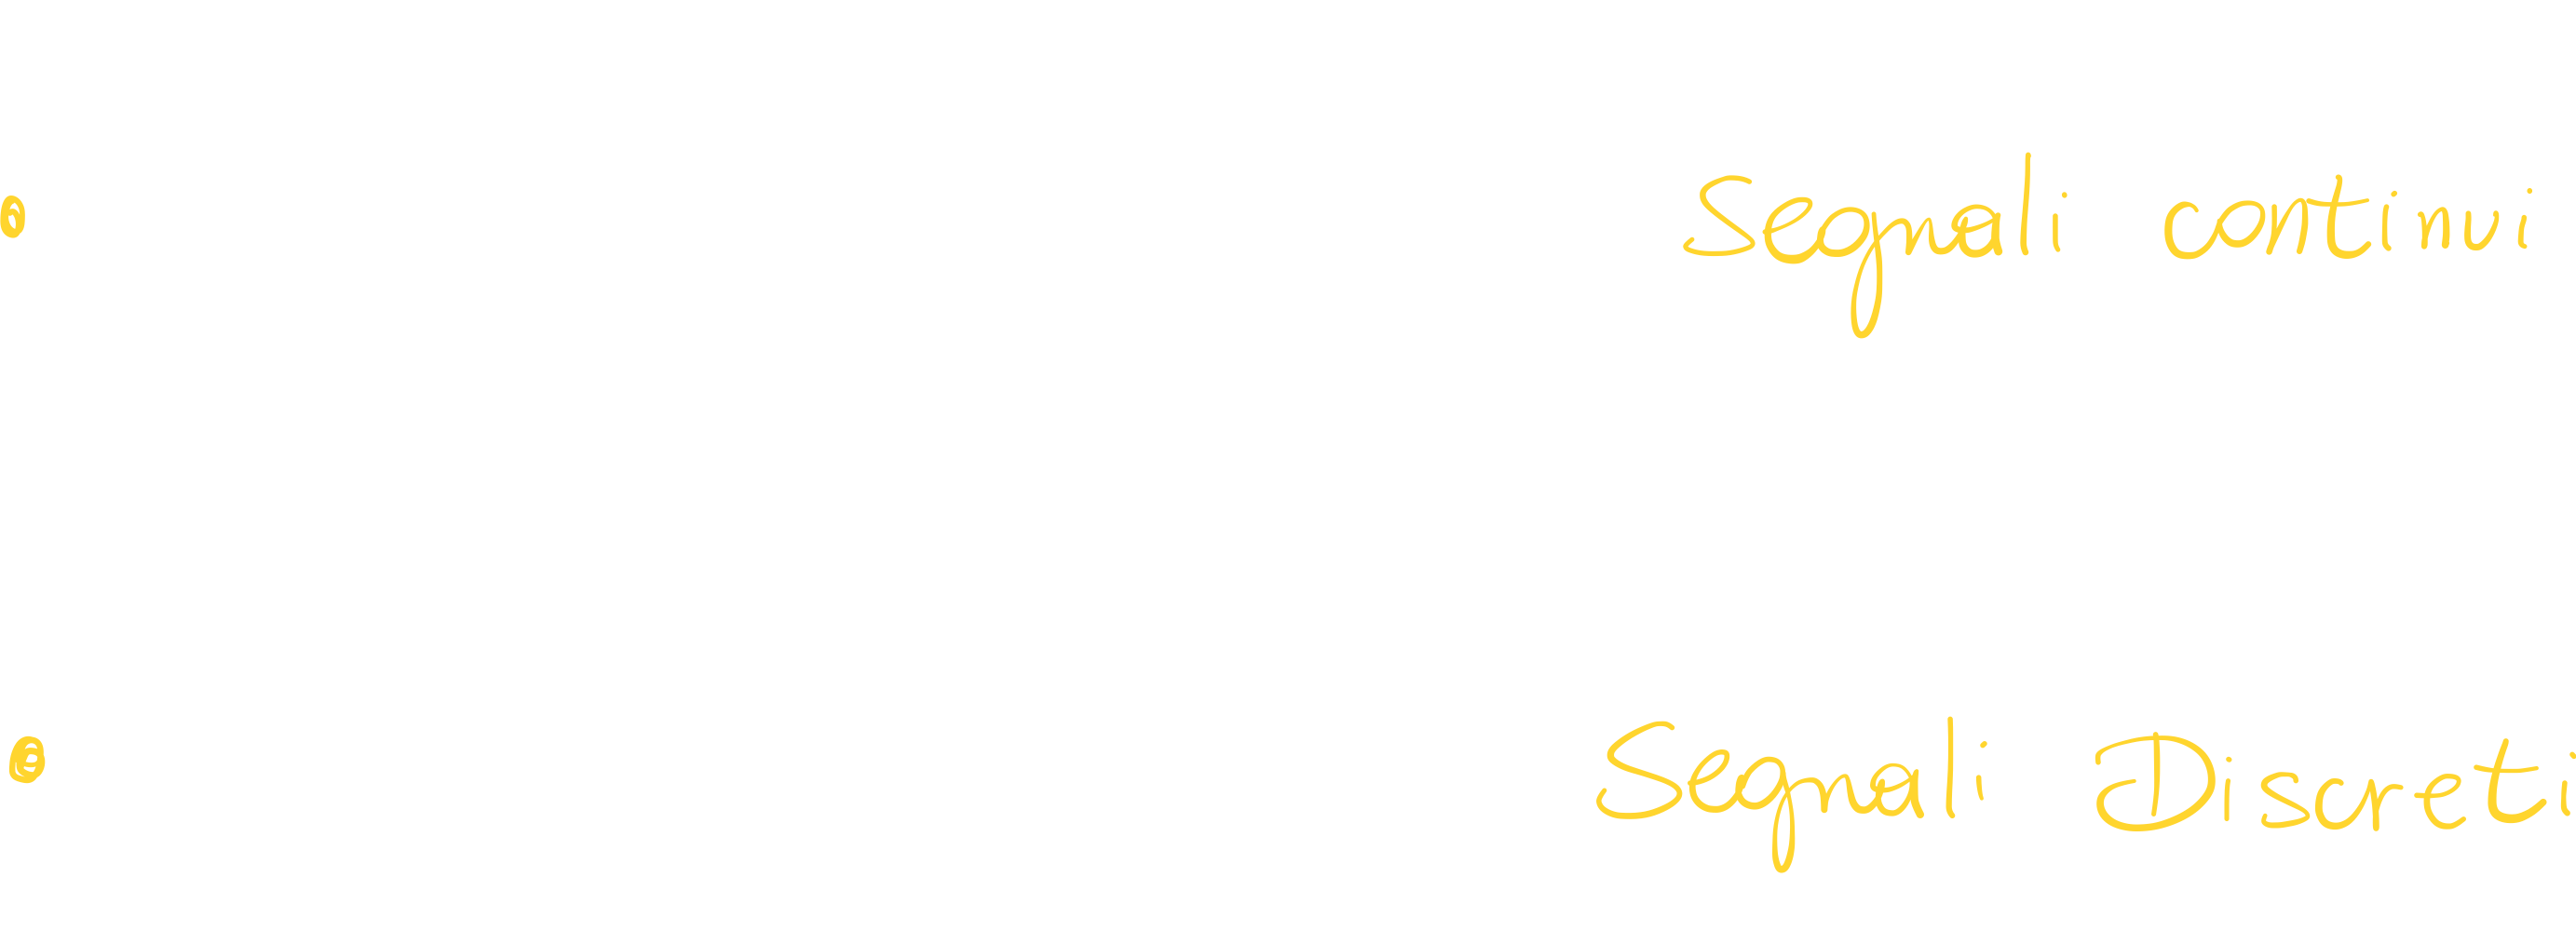 Segnali continui
Segnali Discreti